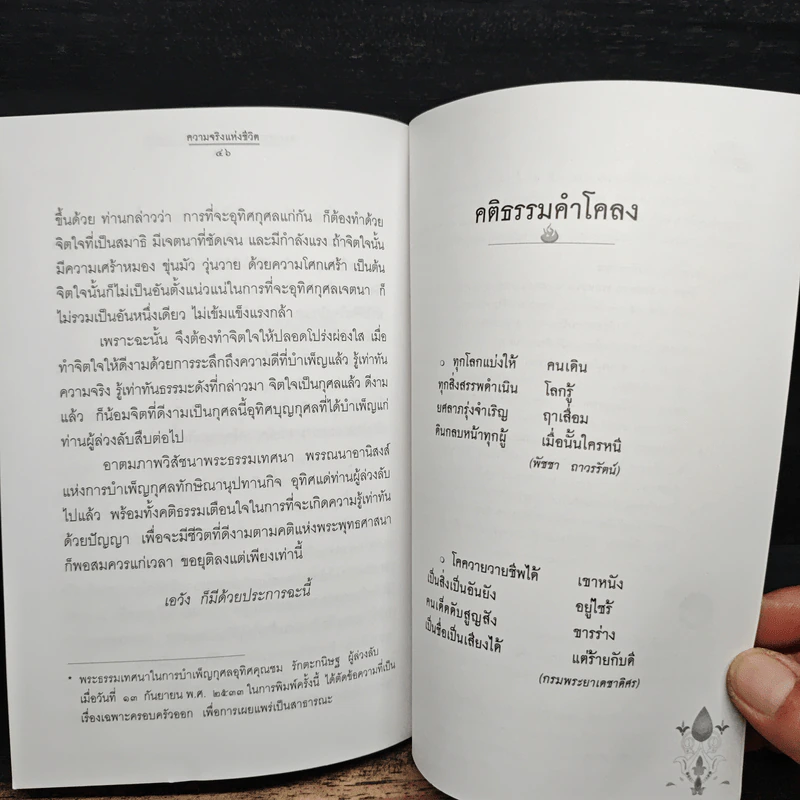 ความจริงแห่งชีวิต
๔๖
ขึ้นด้วย ท่านกล่าวว่า การที่จะอุทิศกุศลแก่กัน ก็ต้องทำด้วย
จิตใจที่เป็นสมาธิ มีเจตนาที่ชัดเจน และมีกำลังแรง ถ้าจิตใจนั้น
มีความเศร้าหมอง ขุ่นมัว วุ่นวาย ด้วยความโศกเศร้า เป็นต้น
จิตใจนั้นก็ไม่เป็นอันตั้งแน่วแน่ในการที่จะอุทิศกุศลเจตนา ก็
ไม่รวมเป็นอันหนึ่งเดียว ไม่เข้มแข็งแรงกล้า
เพราะฉะนั้น จึงต้องทำจิตใจให้ปลอดโปร่งผ่องใส เมื่อ
ทำจิตใจให้ดีงามด้วยการระลึกถึงความดีที่บำเพ็ญแล้ว รู้เท่าทัน
ความจริง รู้เท่าทันธรรมะดังที่กล่าวมา จิตใจเป็นกุศลแล้ว ดีงาม
แล้ว ก็น้อมจิตที่ดีงามเป็นกุศลนี้อุทิศบุญกุศลที่ได้บำเพ็ญแก่
ท่านผู้ล่วงลับสืบต่อไป
อาตมภาพวิสัชนาพระธรรมเทศนา พรรณนาอานิสงส์
แห่งการบำเพ็ญกุศลทักษิณานุปทานกิจ อุทิศแด่ท่านผู้ล่วงลับ
ไปแล้ว พร้อมทั้งคติธรรมเตือนใจในการที่จะเกิดความรู้เท่าทัน
ด้วยปัญญา เพื่อจะมีชีวิตที่ดีงามตามคติแห่งพระพุทธศาสนา
ก็พอสมควรแก่เวลา ขอยุติลงแต่เพียงเท่านี้
เอวัง ก็มีด้วยประการฉะนี้
* พระธรรมเทศนาในการบำเพ็ญกุศลอุทิศคุณชม รักตะกนิษฐ ผู้ล่วงลับ
เมื่อวันที่ ๑๓ กันยายน พ.ศ. ๒๕๓๓ ในการพิมพ์ครั้งนี้ ได้ตัดข้อความที่เป็น
เรื่องเฉพาะครอบครัวออก เพื่อการเผยแพร่เป็นสาธารณะ
คติธรรมคำโคลง
๐ ทุกโลกแบ่งให้ คนเดิน
ทุกสิ่งสรรพดำเนิน โลกรู้
ยศลาภรุ่งจำเริญ ฤาเสื่อม
ดินกลบหน้าทุกผู้ เมื่อนั้นใครหนี
(พัชชา ถาวรรัตน์)
๐ โคควายวายชีพได้ เขาหนัง
เป็นสิ่งเป็นอันยัง อยู่ไซร้
คนเด็ดดับสูญสัง ขารร่าง
เป็นชื่อเป็นเสียงได้ แต่ร้ายกับดี
(กรมพระยาเดชาดิศร)